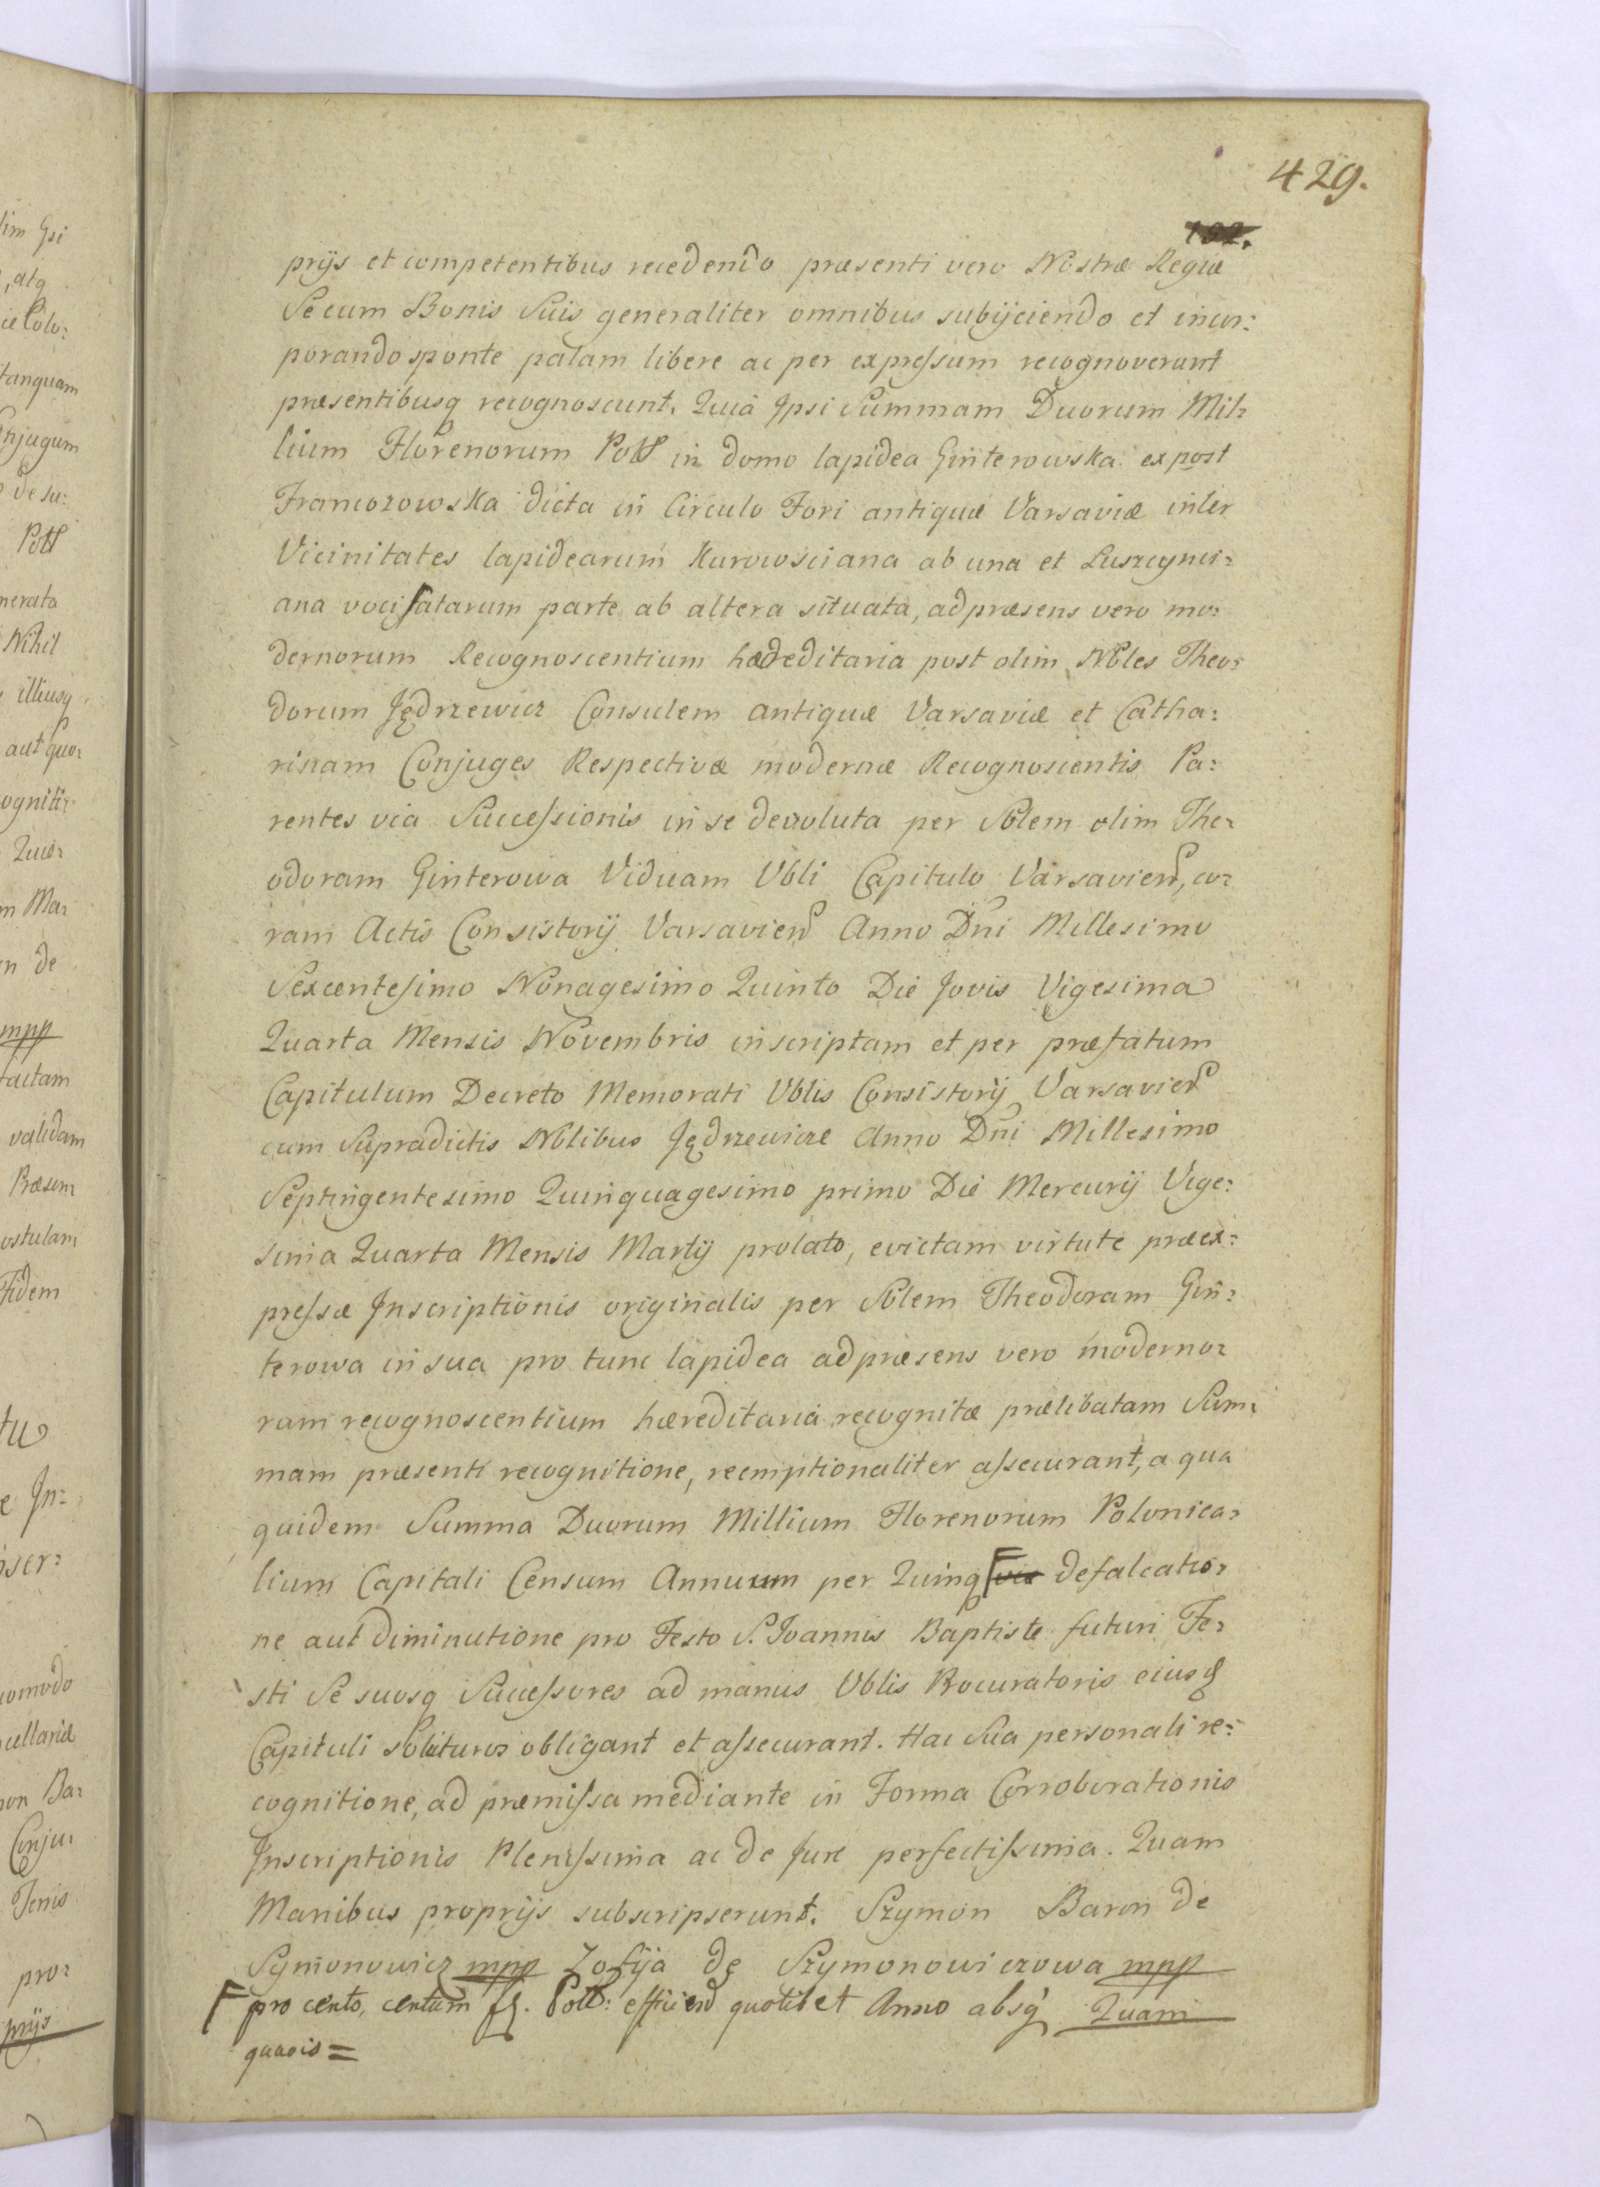 429.
192.
prijs et competentibus recedendo præsenti vero Nostræ Regiæ
Se cum Bonis Suis generaliter omnibus subijciendo et incor:
porando sponte palam libere ac per expressum recognoverunt
præsentibusq recognoscunt. Quia Ipsi Summam Duorum Mil:
lium Florenorum Poll in domo lapidea Ginterowska expost
Francozowska dicta in Circulo Fori antiquæ Varsaviæ inter
Vicinitates lapidearum Kurowsciana ab una et Luszczynci:
ana vocitatarum parte ab altera situata, ad præsens vero mo:
dernorum Recognoscentium hæreditaria post olim Nbles Theo:
dorum Jędrzewicz Consulem antiquæ Varsaviæ et Catha:
rinam Conjuges Respectivæ modernæ Recognoscentis Pa:
rentes via Successionis in se devoluta per Nblem olim The:
odoram Ginterowa Viduam Vbli Capitulo Varsavien, co:
ram Actis Consistorij Varsavien Anno Dni Millesimo
Sexcentesimo Nonagesimo Quinto Die Jovis Vigesima
Quarta Mensis Novembris inscriptam et per præfatum
Capitulum Decreto Memorati Vblis Consistorij Varsavien
cum Supradictis Nblibus Jędrzewicze Anno Dni Millesimo
Septingentesimo Quinquagesimo primo Die Mercurij Vige:
sima Quarta Mensis Martij prolato, evictam virtute præex:
pressæ Inscriptionis originalis per Nblem Theodoram Gin:
terowa in sua pro tunc lapidea ad præsens vero moderno:
rum recognoscentium hæreditaria recognitæ prælibatam Sum:
mam præsenti recognitione, reemptionaliter assecurant, a qua
quidem Summa Duorum Millium Florenorum Polonica:
lium Capitali Censum Annuum per Quinq defalcatio:
ne aut diminutione pro Festo S. Joannis Baptistæ futuri Fe:
sti Se suosq Successores ad manus Vblis Procuratoris eiusd
Capituli soluturos obligant et assecurant. Hac Sua personali re:
cognitione, ad præmissa mediante in Forma Corroborationis
Inscriptionis Plenissima ac de Jure perfectissima. Quam
Manibus proprijs subscripserunt. Szymon Baron de
Symonowicz mpp Zofija de Szymonowiczowa mpp
F pro cento, centum fl. Poll: efficien quotibet Anno absq Quam
quavis =